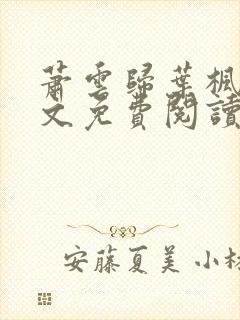 蕭雲歸葉楓
文免費閱讀
安藤夏美 小林